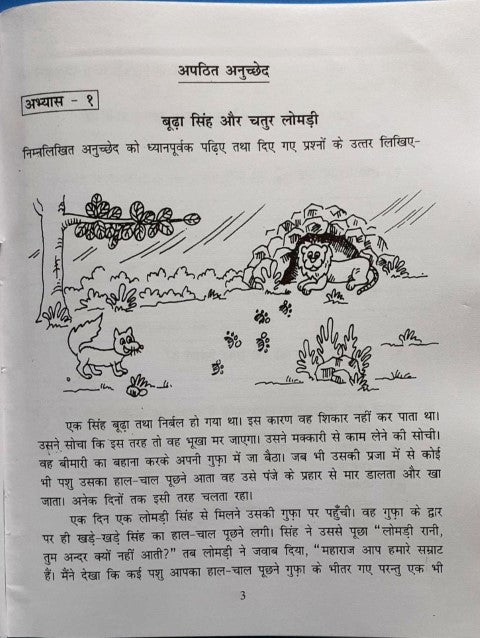 अपठित अनुच्छेद
अभ्यास - १
बूढ़ा सिंह और चतुर लोमड़ी
निम्नलिखित अनुच्छेद को ध्यानपूर्वक पढ़िए तथा दिए गए प्रश्नों के उत्तर लिखिए-
एक सिंह बूढ़ा तथा निर्बल हो गया था। इस कारण वह शिकार नहीं कर पाता था।
उसने सोचा कि इस तरह तो वह भूखा मर जाएगा। उसने मक्कारी से काम लेने की सोची।
वह बीमारी का बहाना करके अपनी गुफ़ा में जा बैठा। जब भी उसकी प्रजा में से कोई
भी पशु उसका हाल-चाल पूछने आता वह उसे पंजे के प्रहार से मार डालता और खा
जाता। अनेक दिनों तक इसी तरह चलता रहा।
एक दिन एक लोमड़ी सिंह से मिलने उसकी गुफ़ा पर पहुँची। वह गुफ़ा के द्वार
पर ही खड़े-खड़े सिंह का हाल-चाल पूछने लगी। सिंह ने उससे पूछा “लोमड़ी रानी,
तुम अन्दर क्यों नहीं आती?” तब लोमड़ी ने जवाब दिया, “महाराज आप हमारे सम्राट
हैं। मैंने देखा कि कई पशु आपका हाल-चाल पूछने गुफ़ा के भीतर गए परन्तु एक भी
3